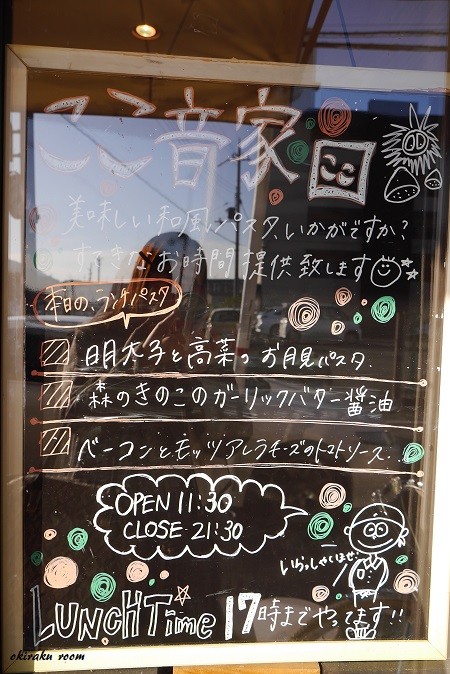 ここ音家
ここ
美味しい和風パスタ、いかがですか?
すてきなお時間提供致します
本日の、ランチパスタ
明太子と高菜のお月見パスタ
森のきのこのガーリックバター醤油
ベーコンとモッツアレラチーズのトマトソース
OPEN 11:30
CLOSE 21:30
いらっしゃいませ
LUNCH Time 17時までやってます!!
okiraku room